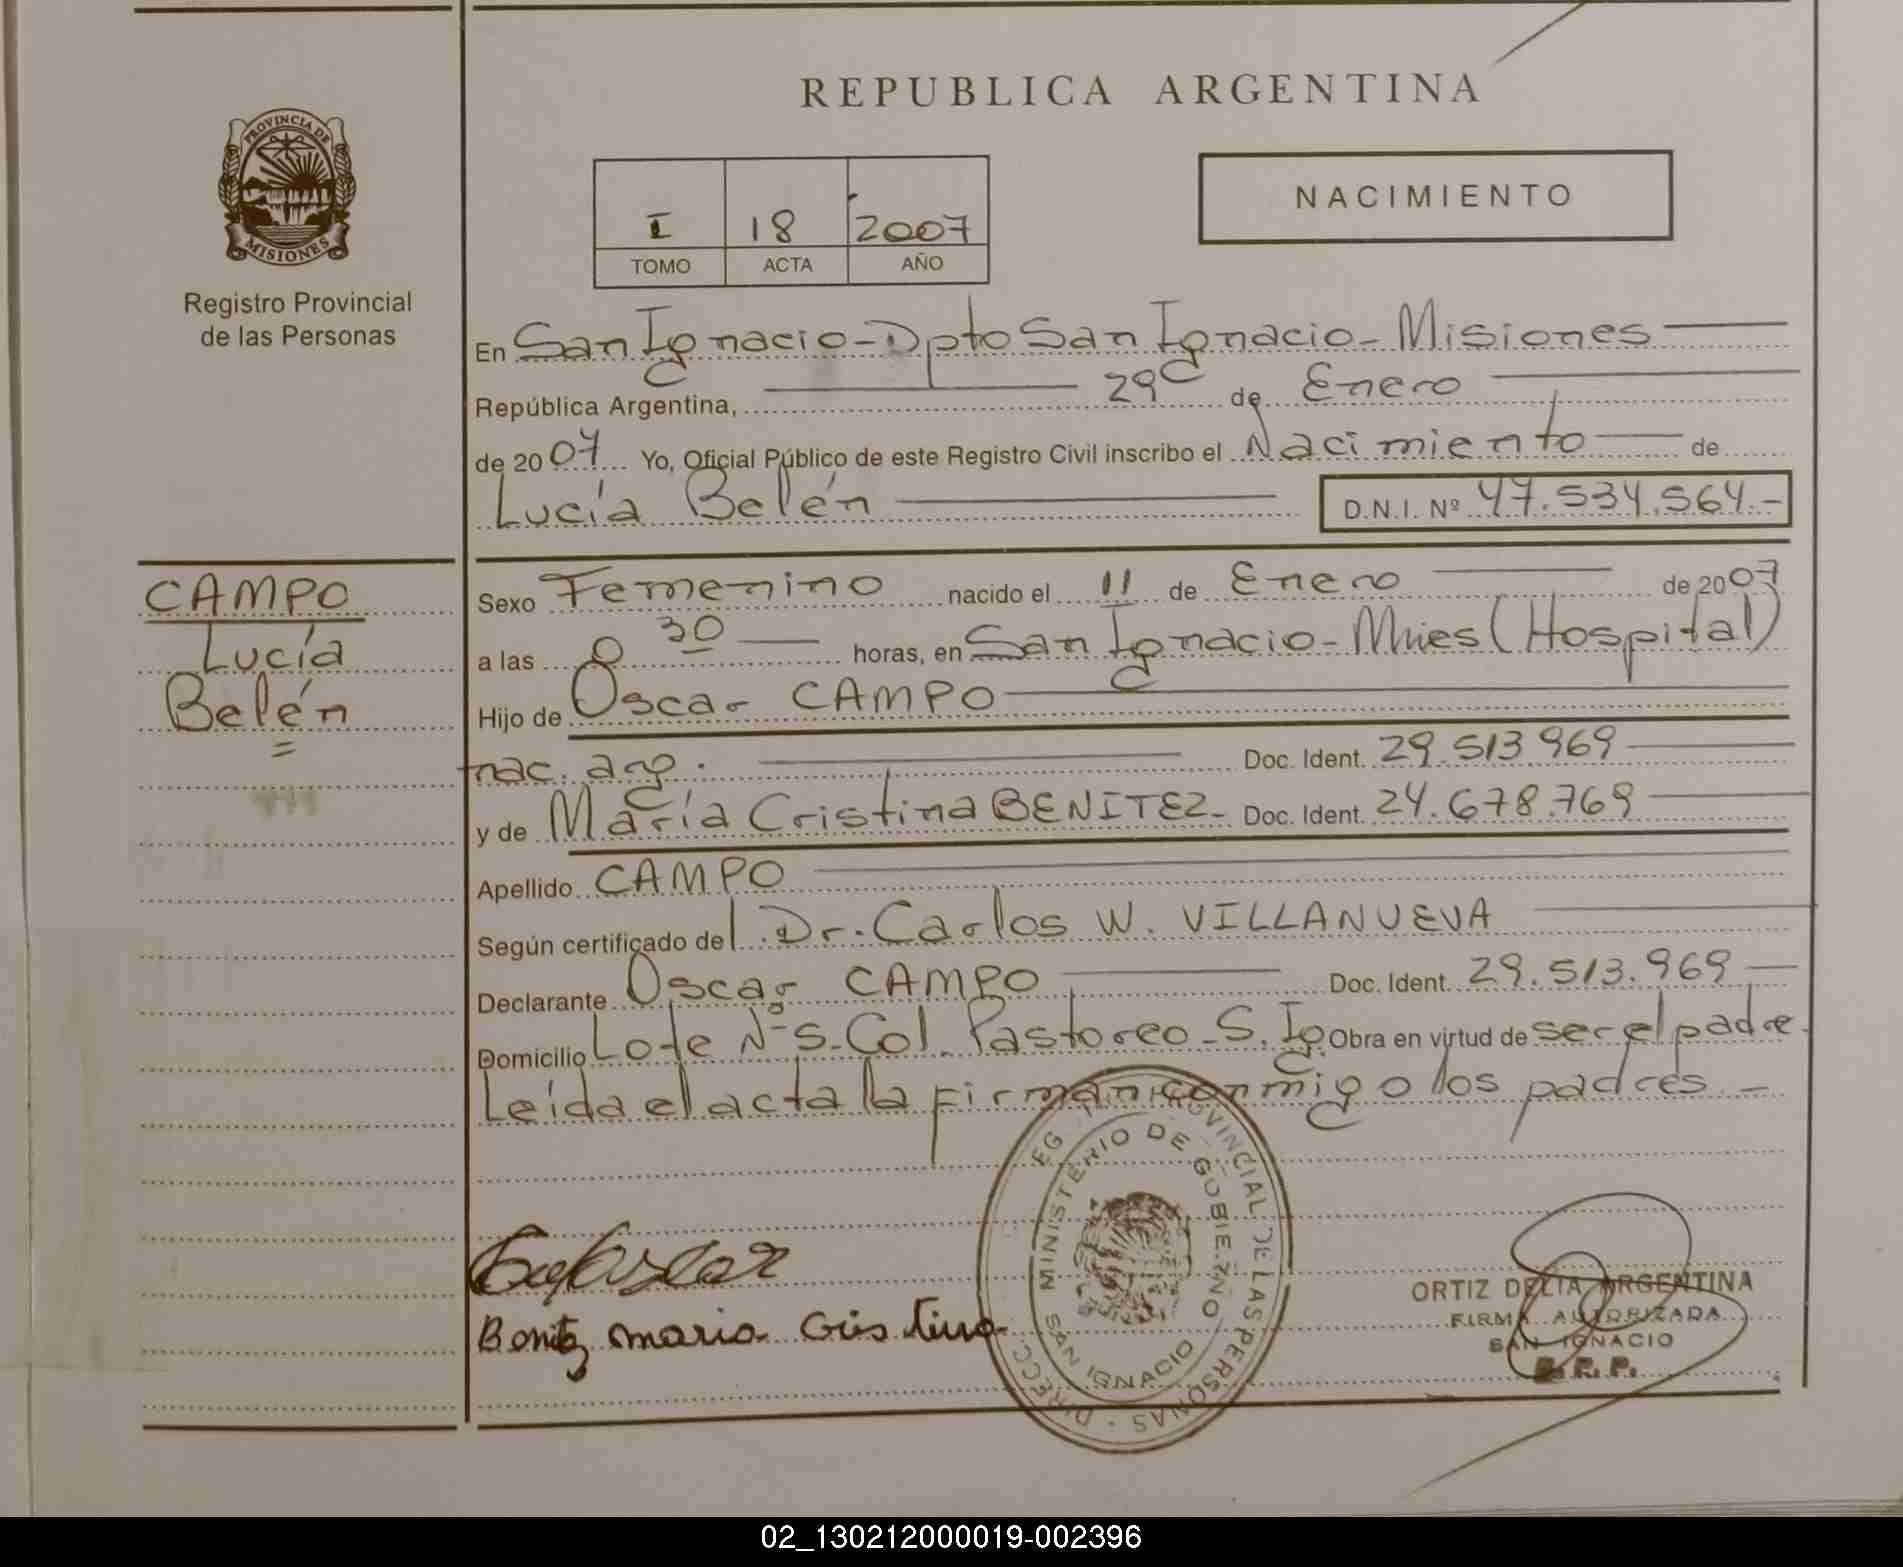 REPUBLICA ARGENTINA
PROVINCIA DE
MISIONES
Registro Provincial
de las Personas
I 18 2007
TOMO ACTA AÑO
NACIMIENTO
En San Ignacio - Dpto San Ignacio - Misiones
República Argentina, 29 de Enero
de 2007 Yo, Oficial Público de este Registro Civil inscribo el Nacimiento de
Lucía Belén D.N.I. Nº 47.534.564.-
CAMPO
Lucía
Belén
Sexo Femenino nacido el 11 de Enero de 2007
a las 0 30 horas, en San Ignacio - Mnies (Hospital)
Hijo de Oscar CAMPO
nac. arg. Doc. Ident. 29.513.969
y de María Cristina BENITEZ - Doc. Ident. 24.678.769
Apellido CAMPO
Según certificado del Dr. Carlos W. VILLANUEVA
Declarante Oscar CAMPO Doc. Ident. 29.513.969
Domicilio Lote Nº 5 - Col. Pastoreo - S. Ig Obra en virtud de ser el padre.
Leída el acta la firman conmigo los padres. -
Benitz maria Cristina
DIRECC. REG. PROVINCIAL DE LAS PERSONAS
MINISTERIO DE GOBIERNO
SAN IGNACIO
ORTIZ DELIA ARGENTINA
FIRMA AUTORIZADA
SAN IGNACIO
R.P.
02_130212000019-002396